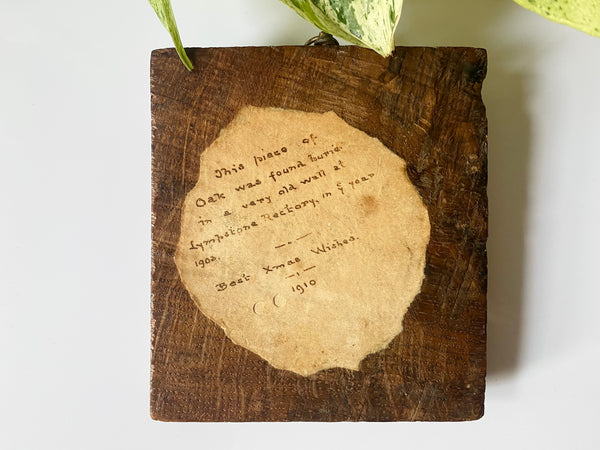 This piece of
Oak was found burie
in a very old wall at
Lympstone Rectory, in ye year
1902.
Best Xmas Wishes.
1910